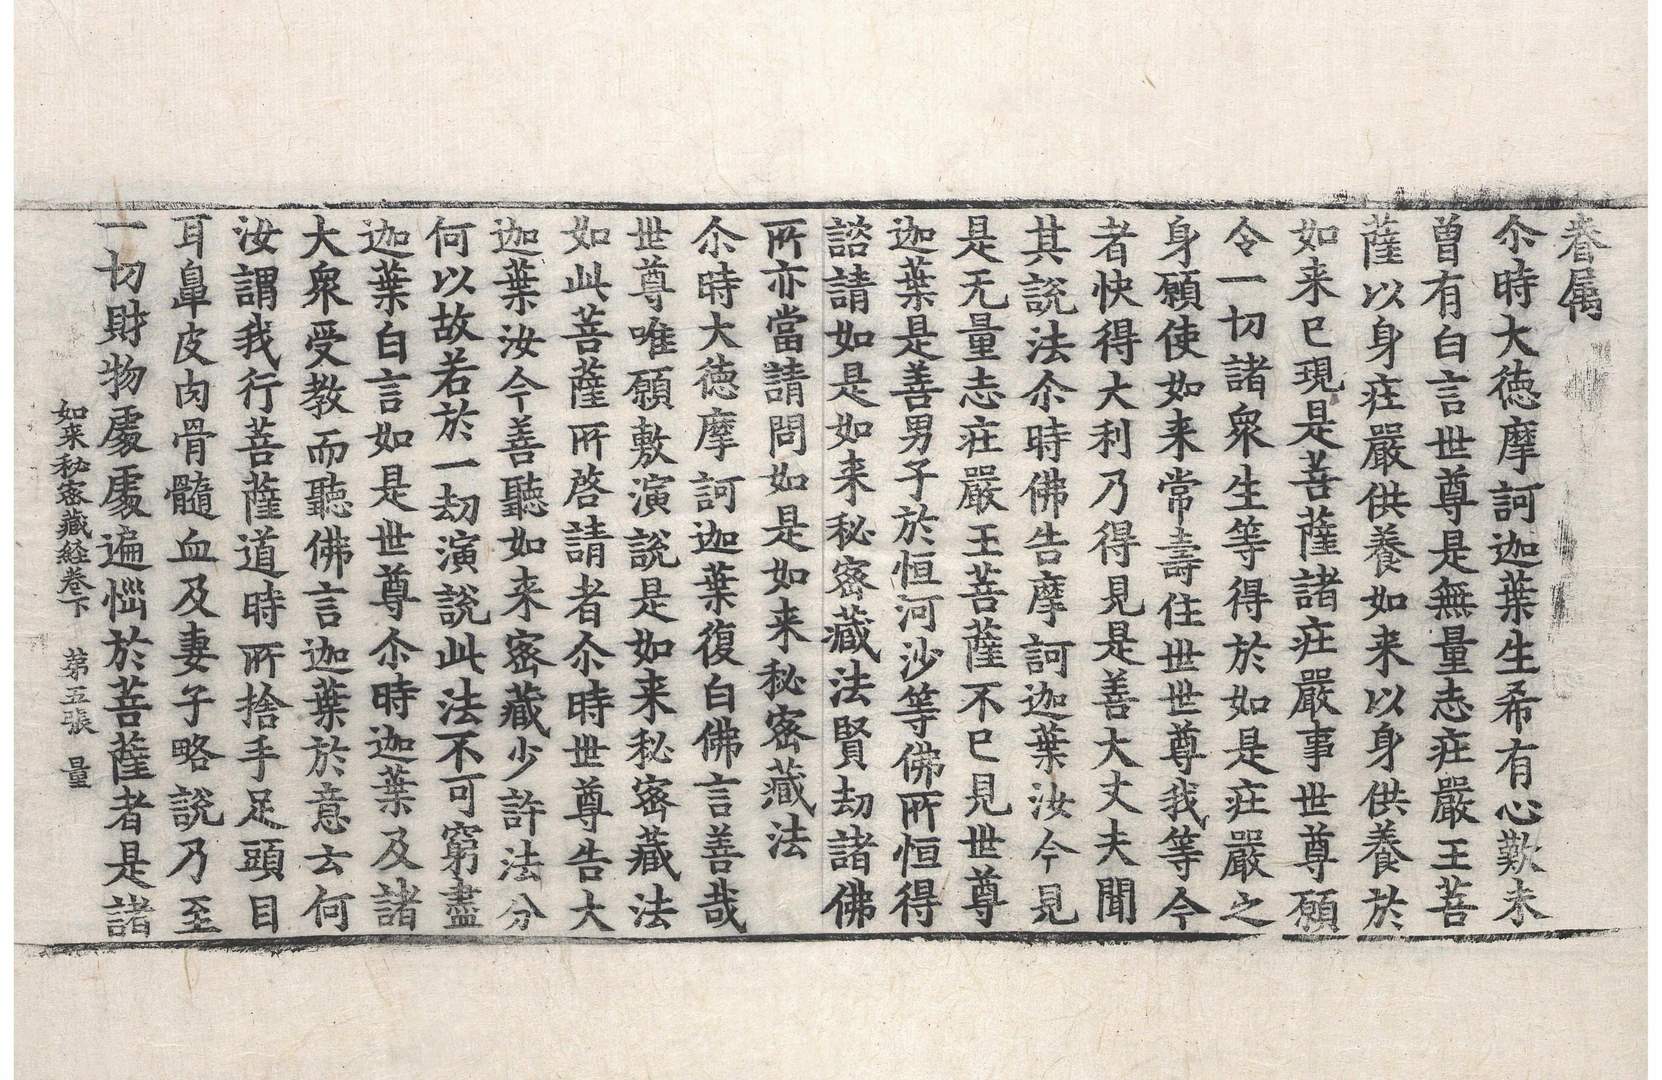 眷属
尒時大徳摩訶迦葉生希有心歎未
曽有白言世尊是無量志㽵嚴王菩
薩以身㽵嚴供養如来以身供養於
如来已現是菩薩諸㽵嚴事世尊願
令一切諸衆生等得於如是㽵嚴之
身願使如来常壽住世世尊我等今
者快得大利乃得見是善大丈夫聞
其說法尒時佛告摩訶迦葉汝今見
是无量志㽵嚴王菩薩不已見世尊
迦葉是善男子於恒河沙等佛所恒得
諮請如是如来秘密藏法賢劫諸佛
所亦當請問如是如来秘密藏法
尒時大徳摩訶迦葉復白佛言善哉
世尊唯願敷演說是如来秘密藏法
如此菩薩所啓請者尒時世尊告大
迦葉汝今善聽如来密藏少許法分
何以故若於一劫演說此法不可窮盡
迦葉白言如是世尊尒時迦葉及諸
大衆受教而聽佛言迦葉於意云何
汝謂我行菩薩道時所捨手足頭目
耳鼻皮肉骨髓血及妻子略說乃至
一切財物處處遍惱於菩薩者是諸
如来秘密藏経巻下 第五張 量